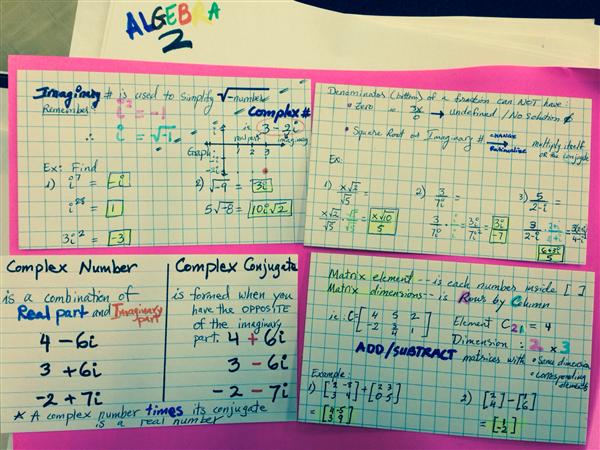 ALGEBRA
2
Imaginary # is used to simplify √-number
Remember: i² = -1
∴ i = √-1
Complex #
3 - 2i
real part imaginary
Graph:
Ex: Find
1) i⁷ = -i
i²⁸ = 1
3i² = -3
2) √-9 = 3i
5√-8 = 10i√2
Denominator (bottom) of a fraction can NOT have:
• Zero = 3x/0 → undefined / No solution ∅
• Square Root or Imaginary # CHANGE Rationalize → multiply itself or the conjugate
Ex:
1) x√2/√5 =
x√2/√5 · √5/√5 = x√10/5
2) 3/7i =
3/7i · i/i = 3i/7i² = 3i/-7
3) 5/2-i =
Complex Number
is a combination of
Real part and Imaginary part
4 - 6i
3 + 6i
-2 + 7i
Complex Conjugate
is formed when you
have the OPPOSITE
of the imaginary
part.
4 + 6i
3 - 6i
-2 - 7i
* A complex number times its conjugate
is a real number
Matrix element -- is each number inside [ ]
Matrix dimensions -- is Rows by Column
Element C21 = 4
Dimension: 2 x 3
ADD/SUBTRACT matrices with • Same dimension
• corresponding elements
Example:
1)
2)